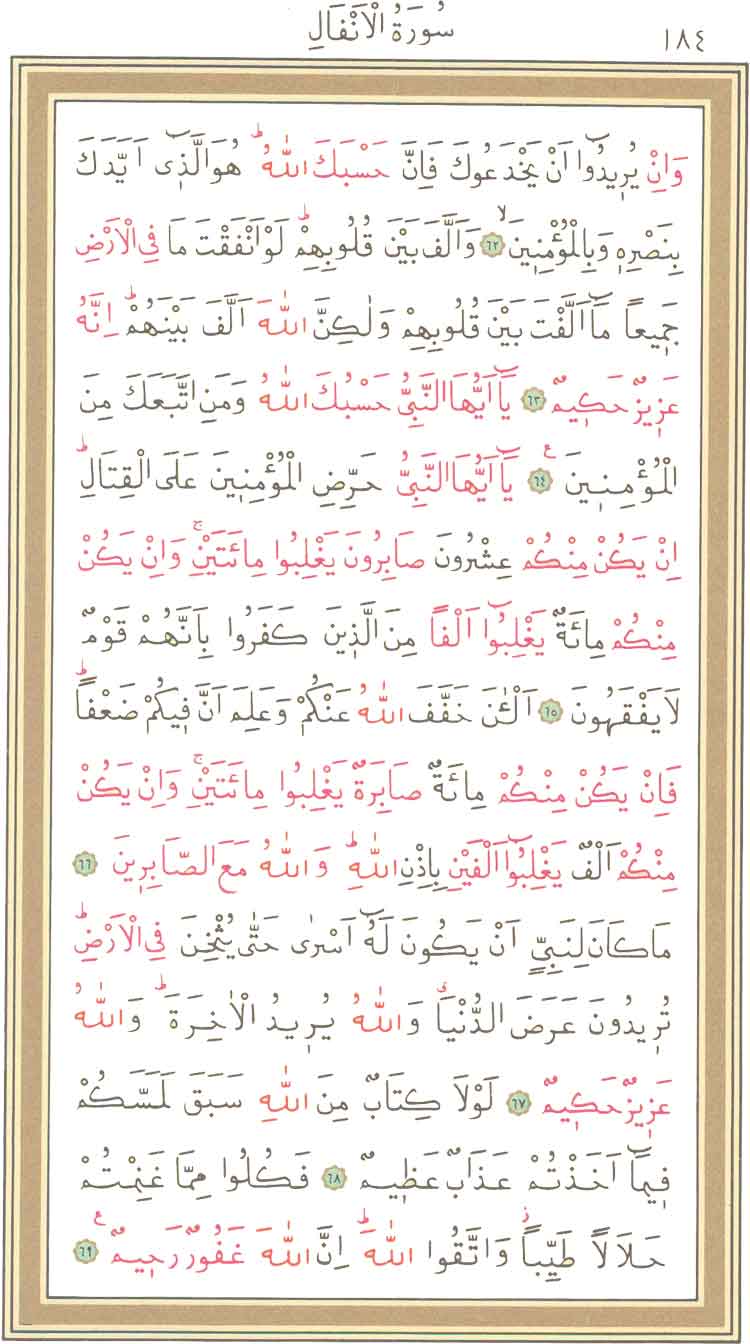 سُورَةُ الْاَنْفَالِ ١٨٤
وَاِنْ يُرٖيدُٓوا اَنْ يَخْدَعُوكَ فَاِنَّ حَسْبَكَ اللّٰهُؕ هُوَ الَّذٖٓي اَيَّدَكَ
بِنَصْرِهٖ وَبِالْمُؤْمِنٖينَۙ ﴿٦٢﴾ وَاَلَّفَ بَيْنَ قُلُوبِهِمْؕ لَوْ اَنْفَقْتَ مَا فِي الْاَرْضِ
جَمٖيعاً مَٓا اَلَّفْتَ بَيْنَ قُلُوبِهِمْ وَلٰكِنَّ اللّٰهَ اَلَّفَ بَيْنَهُمْؕ اِنَّهُ
عَزٖيزٌ حَكٖيمٌ ﴿٦٣﴾ يَٓا اَيُّهَا النَّبِيُّ حَسْبُكَ اللّٰهُ وَمَنِ اتَّبَعَكَ مِنَ
الْمُؤْمِنٖينَࣖ ﴿٦٤﴾ يَٓا اَيُّهَا النَّبِيُّ حَرِّضِ الْمُؤْمِنٖينَ عَلَى الْقِتَالِؕ
اِنْ يَكُنْ مِنْكُمْ عِشْرُونَ صَابِرُونَ يَغْلِبُوا مِائَتَيْنِۚ وَاِنْ يَكُنْ
مِنْكُمْ مِائَةٌ يَغْلِبُٓوا اَلْفاً مِنَ الَّذٖينَ كَفَرُوا بِاَنَّهُمْ قَوْمٌ
لَا يَفْقَهُونَ ﴿٦٥﴾ اَلْـٰٔنَ خَفَّفَ اللّٰهُ عَنْكُمْ وَعَلِمَ اَنَّ فٖيكُمْ ضَعْفاًؕ
فَاِنْ يَكُنْ مِنْكُمْ مِائَةٌ صَابِرَةٌ يَغْلِبُوا مِائَتَيْنِۚ وَاِنْ يَكُنْ
مِنْكُمْ اَلْفٌ يَغْلِبُٓوا اَلْفَيْنِ بِاِذْنِ اللّٰهِؕ وَاللّٰهُ مَعَ الصَّابِرٖينَ ﴿٦٦﴾
مَا كَانَ لِنَبِيٍّ اَنْ يَكُونَ لَهُٓ اَسْرٰى حَتّٰى يُثْخِنَ فِي الْاَرْضِؕ
تُرٖيدُونَ عَرَضَ الدُّنْيَاࣗ وَاللّٰهُ يُرٖيدُ الْاٰخِرَةَؕ وَاللّٰهُ
عَزٖيزٌ حَكٖيمٌ ﴿٦٧﴾ لَوْلَا كِتَابٌ مِنَ اللّٰهِ سَبَقَ لَمَسَّكُمْ
فٖيمَٓا اَخَذْتُمْ عَذَابٌ عَظٖيمٌ ﴿٦٨﴾ فَكُلُوا مِمَّا غَنِمْتُمْ
حَلَالاً طَيِّباًؗ وَاتَّقُوا اللّٰهَؕ اِنَّ اللّٰهَ غَفُورٌ رَحٖيمٌࣖ ﴿٦٩﴾